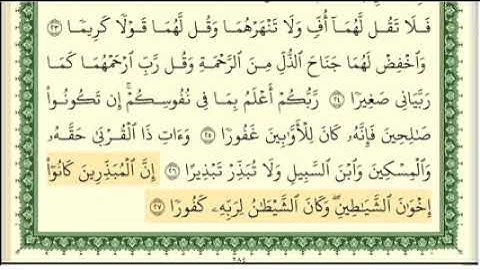 فَلَا تَقُل لَّهُمَآ أُفٍّ وَلَا تَنْهَرْهُمَا وَقُل لَّهُمَا قَوْلًا كَرِيمًا ٢٣
وَٱخْفِضْ لَهُمَا جَنَاحَ ٱلذُّلِّ مِنَ ٱلرَّحْمَةِ وَقُل رَّبِّ ٱرْحَمْهُمَا كَمَا
رَبَّيَانِي صَغِيرًا ٢٤ رَّبُّكُمْ أَعْلَمُ بِمَا فِي نُفُوسِكُمْ ۚ إِن تَكُونُوا۟
صَـٰلِحِينَ فَإِنَّهُۥ كَانَ لِلْأَوَّٰبِينَ غَفُورًا ٢٥ وَءَاتِ ذَا ٱلْقُرْبَىٰ حَقَّهُۥ
وَٱلْمِسْكِينَ وَٱبْنَ ٱلسَّبِيلِ وَلَا تُبَذِّرْ تَبْذِيرًا ٢٦ إِنَّ ٱلْمُبَذِّرِينَ كَانُوٓا۟
إِخْوَٰنَ ٱلشَّيَـٰطِينِ ۖ وَكَانَ ٱلشَّيْطَـٰنُ لِرَبِّهِۦ كَفُورًا ٢٧
٢٨٤